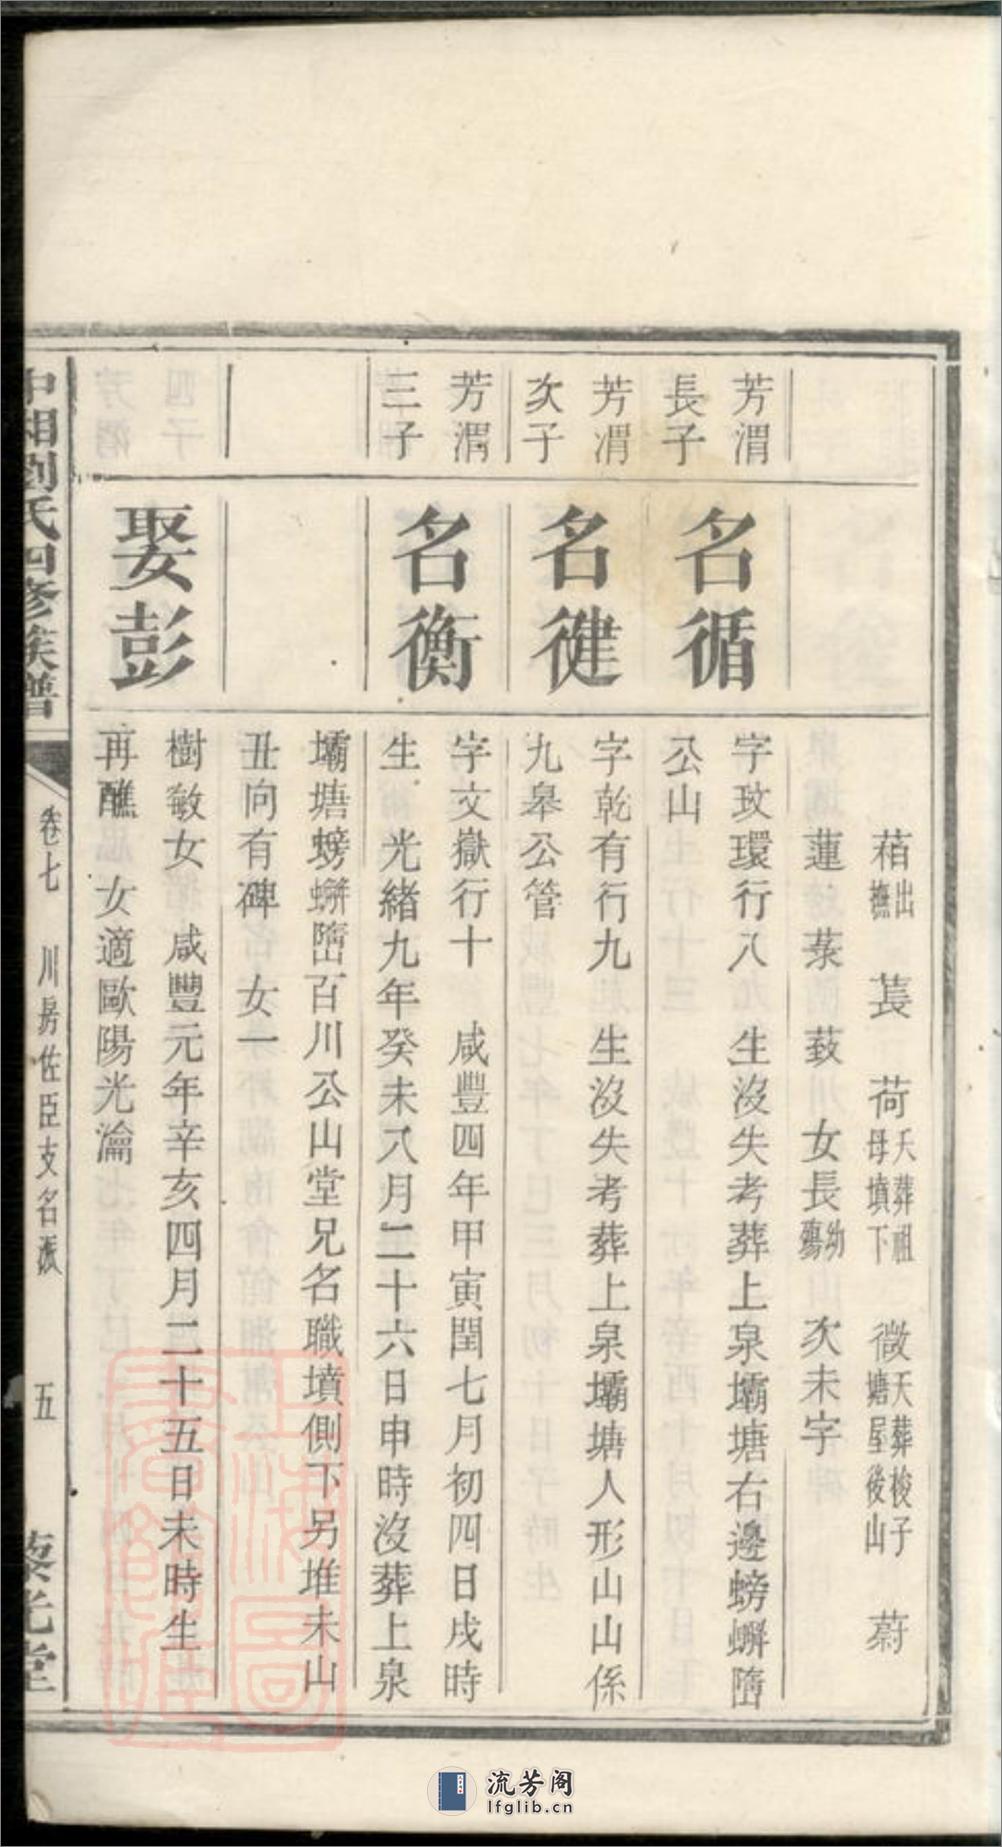 萂出撫　萇　荷夭葬祖母墳下　薇夭葬梭子塘屋後山　蔚
蓮　蒣　蔱　女長幼殤　次未字
芳渭長子
名循
字玟環行八　生沒失考葬上泉壩塘右邊螃蠏䧟
公山
芳渭次子
名健
字乾有行九　生沒失考葬上泉壩塘人形山山係
九皋公管
芳渭三子
名衡
字文嶽行十　咸豐四年甲寅閏七月初四日戌時
生　光緒九年癸未八月二十六日申時沒葬上泉
壩塘螃蠏䧟百川公山堂兄名職墳側下另堆未山
丑向有碑　女一
娶彭
樹敏女　咸豐元年辛亥四月二十五日未時生
再醮　女適歐陽光瀹
中湘劉氏四修族譜
卷七　川房佐臣支名派　五　藜光堂
流芳阁
lfglib.cn